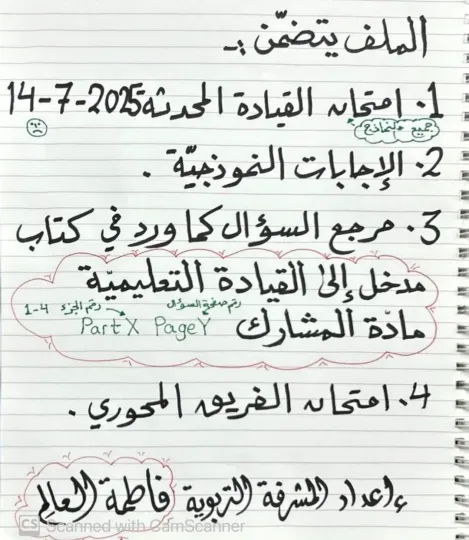 الملف يتضمّن :-
1. امتحان القيادة المحدثة 2025-7-14
جميع النماذج
2. الإجابات النموذجيّة .
3. مرجع السؤال كما ورد في كتاب
مدخل إلى القيادة التعليميّة
رقم صفحة السؤال رقم الجزء 1-4
مادّة المشارك Part X Page Y
4. امتحان الفريق المحوري .
إعداد المشرفة التربوية فاطمة العالم
CS Scanned with CamScanner